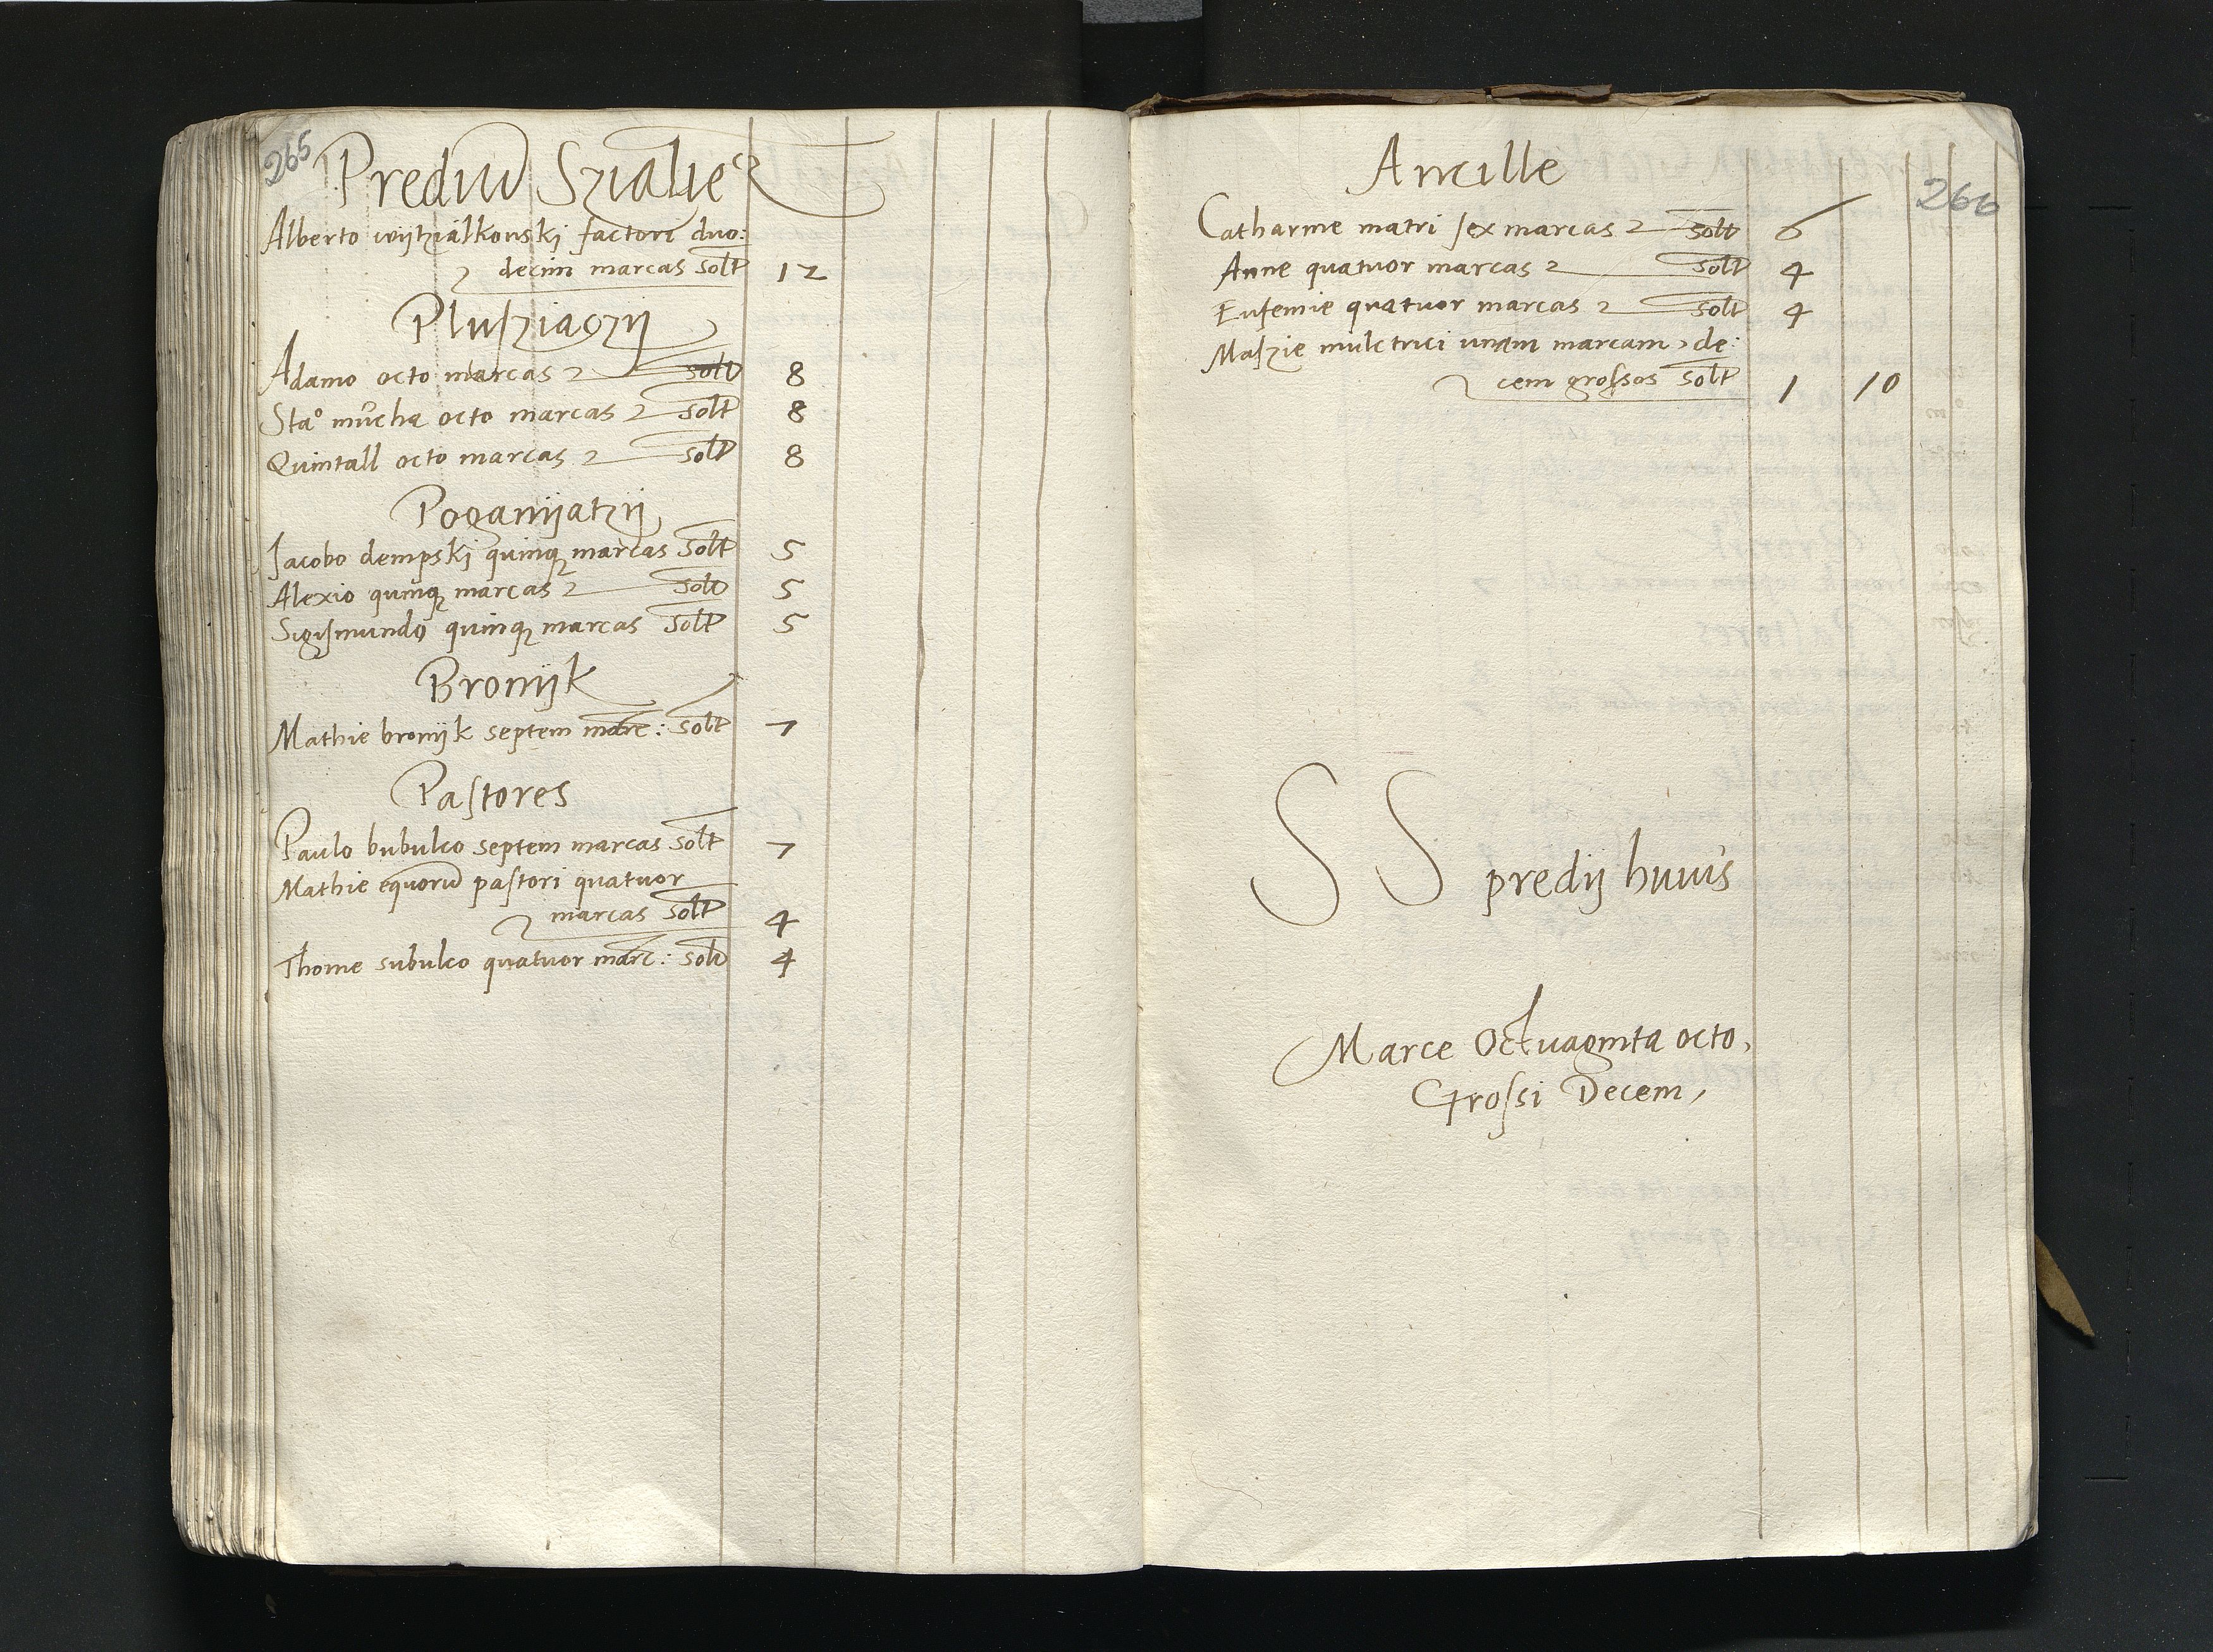 265
Prediū Szialiec
Alberto wijtzialkouskj factori duo:
decim marcas solt 12
Pluſziaczij
Adamo octo marcas solt 8
Stao mucha octo marcas solt 8
Quintall octo marcas solt 8
Poganijatzij
Jacobo dempskj quinq marcas solt 5
Alexio quinq marcas solt 5
Sigiſmundo quinq marcas solt 5
Bronijk
Mathie bronijk septem marc: solt 7
Paſtores
Paulo bubulco septem marcas solt 7
Mathie equorū paſtori quatuor
marcas solt 4
Thome subulco quatuor marc: solt 4
266
Ancille
Catharine matri ſex marcas solt 6
Anne quatuor marcas solt 4
Eufemie quatuor marcas solt 4
Maſzie mulctrici unam marcam, de:
cem groſsos solt 1 10
SS predij huius
Marce Octuaginta octo,
Groſsi Decem,